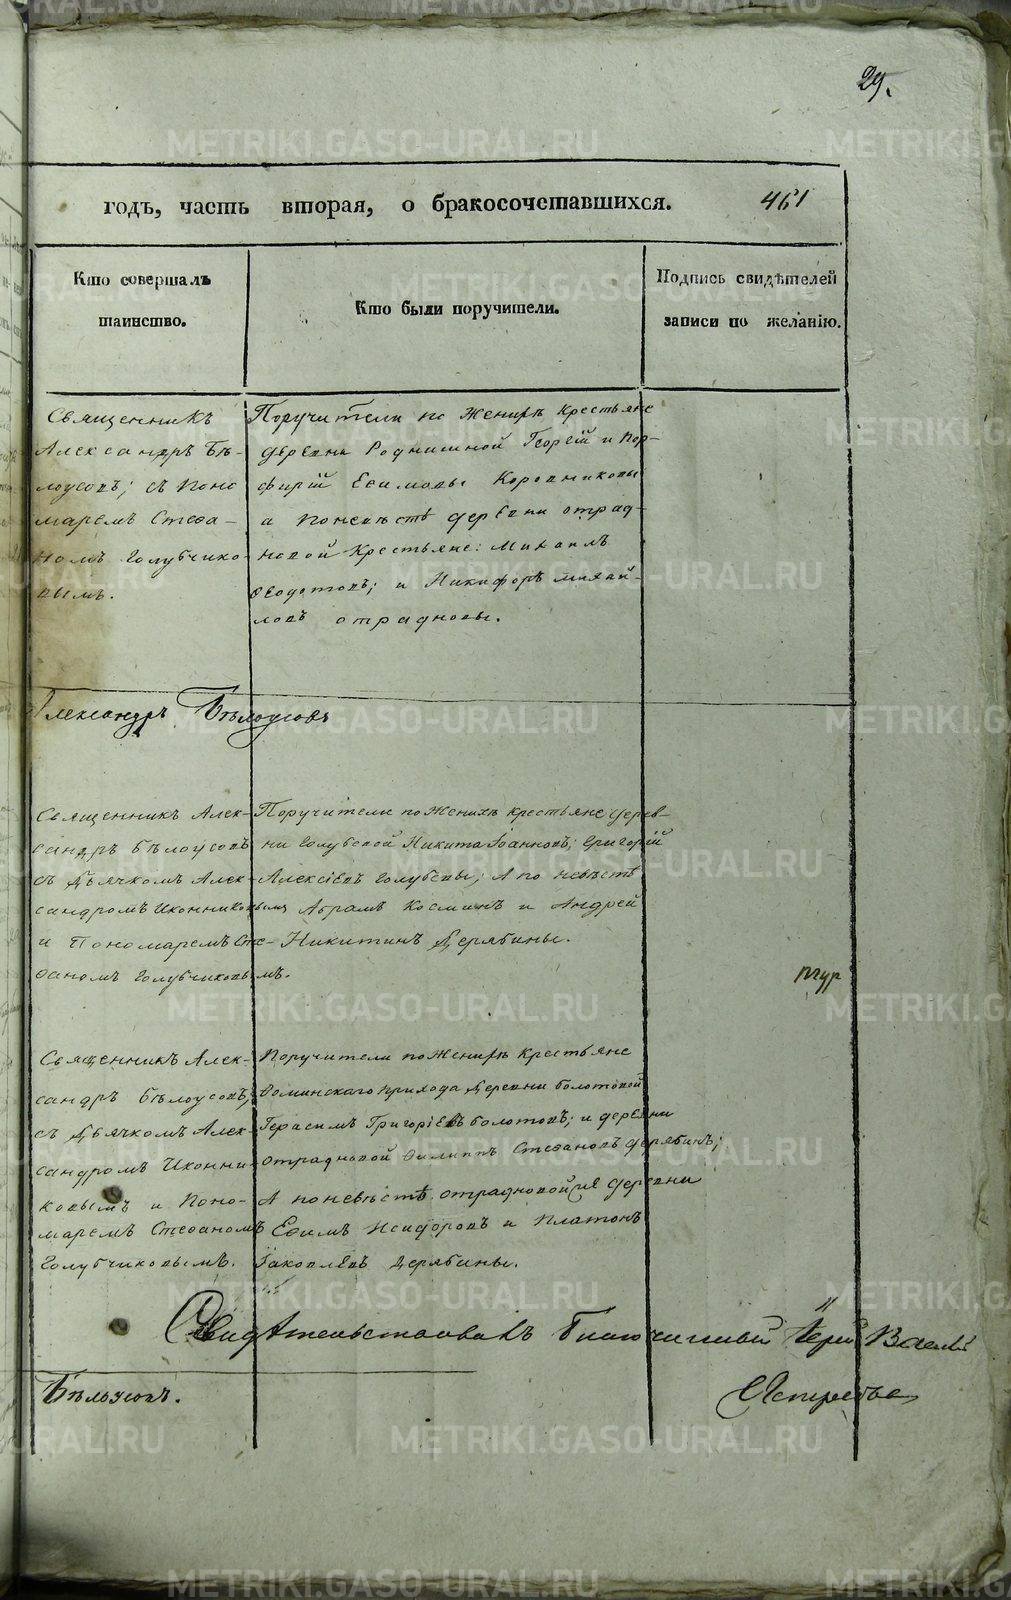 29.
годъ, часть вторая, о бракосочетавшихся. 461
Кто совершалъ таинство.
Кто были поручители.
Подпись свидѣтелей записи по желанію.
Священникъ
Александръ Бѣ-
лоусовъ; съ Поно
маремъ Стефа-
номъ Голубчико-
вымъ.
Поручители по Женихѣ Крестьяне
деревни Роднишной Георгій и Пор-
фирій Евимовы Коровниковы
а По невѣстѣ деревни отрад-
новой Крестьяне: Михаилъ
Ѳеодотовъ; и Никифоръ михай-
ловъ отрадновы.
Александръ Бѣлоусовъ
Священникъ Алек-
сандръ Бѣлоусовъ
съ Дьячкомъ Алек-
сандромъ Иконниковымъ
и Пономаремъ Сте-
ѳаномъ Голубчиковымъ.
Поручители по Женихѣ крестьяне дерев-
ни Голубевой Никита Іоанновъ; Григорій
Алексіевъ Голубевы; А по невѣстѣ
Абрамъ Косминъ и Андрей
Никитинъ Дерябины.
Священникъ Алек-
сандръ Бѣлоусовъ,
съ Дьячкомъ Алек-
сандромъ Иконни-
ковымъ и Поно-
маремъ Стеѳаномъ
Голубчиковымъ.
Поручители по Женихѣ Крестьяне
Ѳоминскаго прихода Деревни болотовой
Герасимъ Григоріевъ болотовъ; и деревни
отрадновой Филиппъ Стеѳановъ дерябинъ;
А по невѣстѣ отрадновой же деревни
Евимъ Исидоровъ и Платонъ
Іаковлевъ Дерябины.
Свидѣтельствовалъ благочинный Іерей
Бѣлоусовъ.
METRIKI.GASO-URAL.RU